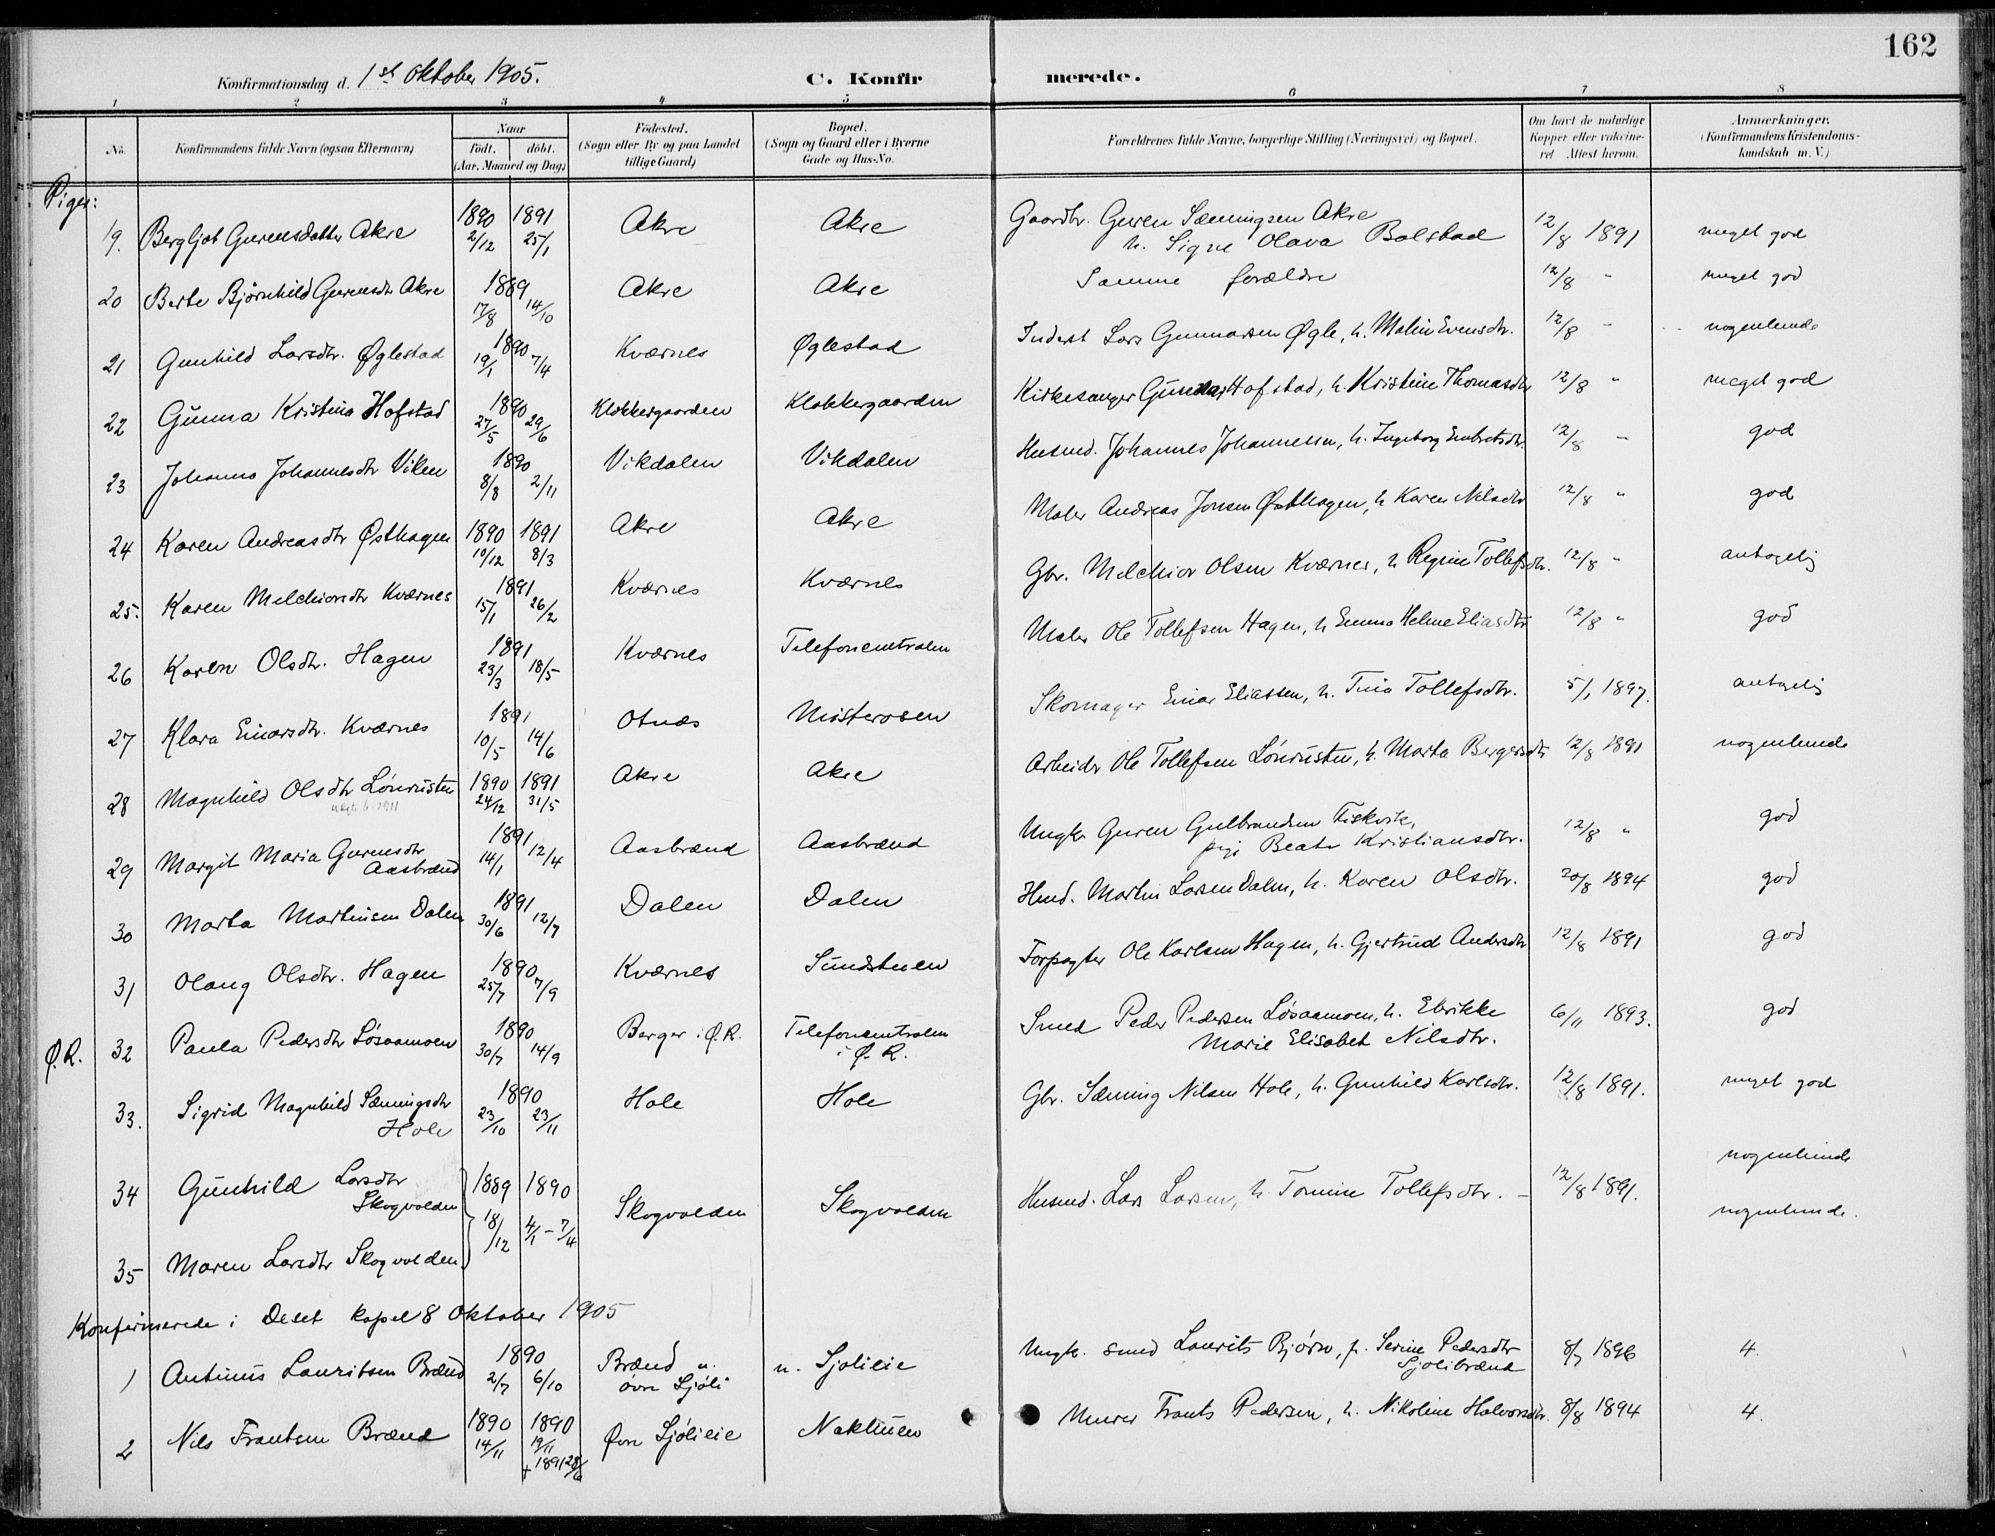 162
Konfirmationsdag d. 1st Oktober 1905. C. Konfirmerede.
1 2 3 4 5 6 7 8
No. Konfirmandens fulde Navn (ogsaa Efternavn) Naar födt. döbt. (Aar, Maaned og Dag) Födested. (Sogn eller By og paa Landet tillige Gaard) Bopæl. (Sogn og Gaard eller i Byerne Gade og Hus-No. Forældrenes fulde Navne, borgerlige Stilling (Næringsvei) og Bopæl. Om havt de naturlige Kopper eller vakcineret Attest herom. Anmærkninger. (Konfirmandens Kristendomskundskab m. V.)
Piger:
19. Bergljot Gurensdatter Akre 1890 2/12 1891 25/1 Akre Akre Gaardbr. Guren Sæmingsen Akre h. Signe Olava Bolstad 12/8 1891 meget god
20 Berte Bjørnhild Gurensdtr Akre 1889 17/8 14/10 Akre Akre Samme forældre 12/8 " meget god
21 Gunhild Larsdtr. Øglestad 1890 19/1 7/4 Kværnes Øglestad Inderst Lars Gunnarsen Øgle, h. Malin Evensdtr. 12/8 " nogenlunde
22 Gunna Kristina Hofstad 1890 27/5 29/6 Klokkergaarden Klokkergaarden Kirkesanger Gunnar Hofstad, h. Kristine Thomasdtr 12/8 " meget god
23 Johanna Johannesdtr Viken 1890 8/8 2/11 Vikdalen Vikdalen Husmd. Johannes Johannesen, h. Ingeborg Embretsdtr. 12/8 " god
24 Karen Andreasdtr Østhagen 1890 10/12 1891 8/3 Akre Akre Maler Andreas Jonsen Østhagen, h Karen Nilsdtr 12/8 " god
25. Karen Melchiorsdtr Kværnes 1891 15/1 26/2 Kværnes Kværnes Gbr. Melchior Olsen Kværnes, h Regine Tollefsdtr. 12/8 " antagelig
26 Karen Olsdtr. Hagen 1891 23/3 18/5 Kværnes Telefoncentralen Maler Ole Tollefsen Hagen, h Emma Helene Eliasdtr 12/8 " god
27 Klara Einarsdtr. Kværnes 1891 10/5 14/6 Otnæs Misterosen Skomager Einar Eliassen, h. Tina Tollefsdtr. 5/1 1897. antagelig
28 Magnhild Olsdtr Lönrusten 1890 24/12 1891 31/5 Akre Akre Arbeider Ole Tollefsen Lönrusten, h. Marta Bergersdtr 12/8 1891 nogenlunde
29 Margit Maria Gurensdtr Aasbrænd 1891 14/1 12/4 Aasbrænd Aasbrænd Ungkr. Guren Gulbrandsen Fiskvik, pige Beate Kristiansdtr. 12/8 " god
30 Marta Martinsen Dalen 1891 30/6 12/7 Dalen Dalen Husmd. Martin Larsen Dalen, h. Karen Olsdtr. 20/8 1894 god
31 Olaug Olsdtr. Hagen 1890 25/7 7/9 Kværnes Sundstuen Forpagter Ole Karlsen Hagen, h. Gjertrud Andersdtr 12/8 1891 god
Ø.R. 32 Paula Pedersdtr Løsaamoen 1890 30/7 14/9 Berger i Ø.R. Telefoncentralen i Ø. R. Smed Peder Pedersen Løsaamoen, h. Elvrikke Marie Elisabet Nilsdtr. 6/11 1893. god
33. Sigrid Magnhild Sæmingsdtr Hole 1890 23/10 23/11 Hole Hole Gbr. Sæming Nilsen Hole, h. Gunhild Karlsdtr. 12/8 1891. meget god
34 Gunhild Larsdtr Skogvolden 1889 18/12 1890 4/1 - 7/4 Skogvolden Skogvolden Husmd. Lars Larsen, h. Tomine Tollefsdtr. - 12/8 1891. nogenlunde
35 Maren Larsdtr Skogvolden nogenlunde.
Konfirmerede i Deset kapel 8 Oktober 1905
1 Antinus Lauritsen Brænd 1890 2/7 6/10 Brænd u. øvre Sjöli u. Sjolieie Ungk. smed Laurits Bjørn, p. Serine Pedersdtr Sjolibrænd 8/7 1896 4.
2 Nils Frantsen Brænd 1890 14/11 1890 19/11 + 1891 28/6 Øvre Sjölieie Naktuen Murer Frants Pedersen, h. Nikoline Halvorsdtr. 8/8 1894 4.